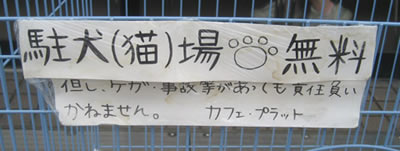 駐犬(猫)場 無料
但し、ケガ・事故等があっても責任負い
かねません。 カフェ・プラット